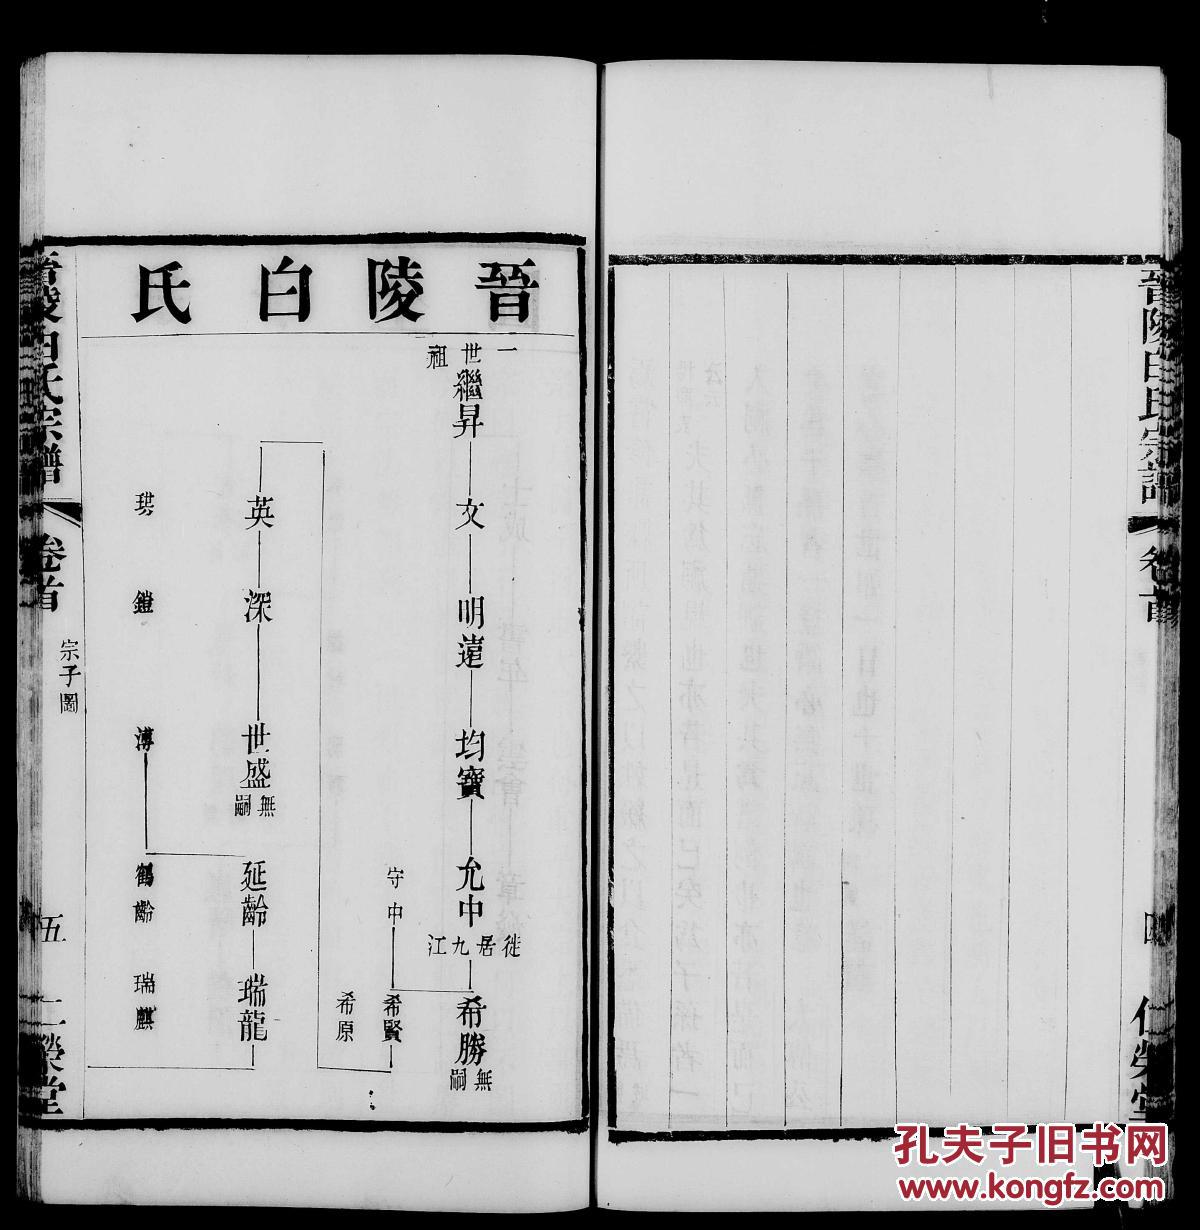 晉陵白氏宗譜
卷首
四
仁榮堂
晉陵白氏
一世祖
繼昇
文
明遠
均寶
允中
徙居九江
希勝
無嗣
守中
希賢
希原
英
深
世盛
無嗣
延齡
瑞龍
溥
鶴齡
瑞麒
晉陵白氏宗譜
卷首
宗子圖
五
仁榮堂
孔夫子旧书网
www.kongfz.com